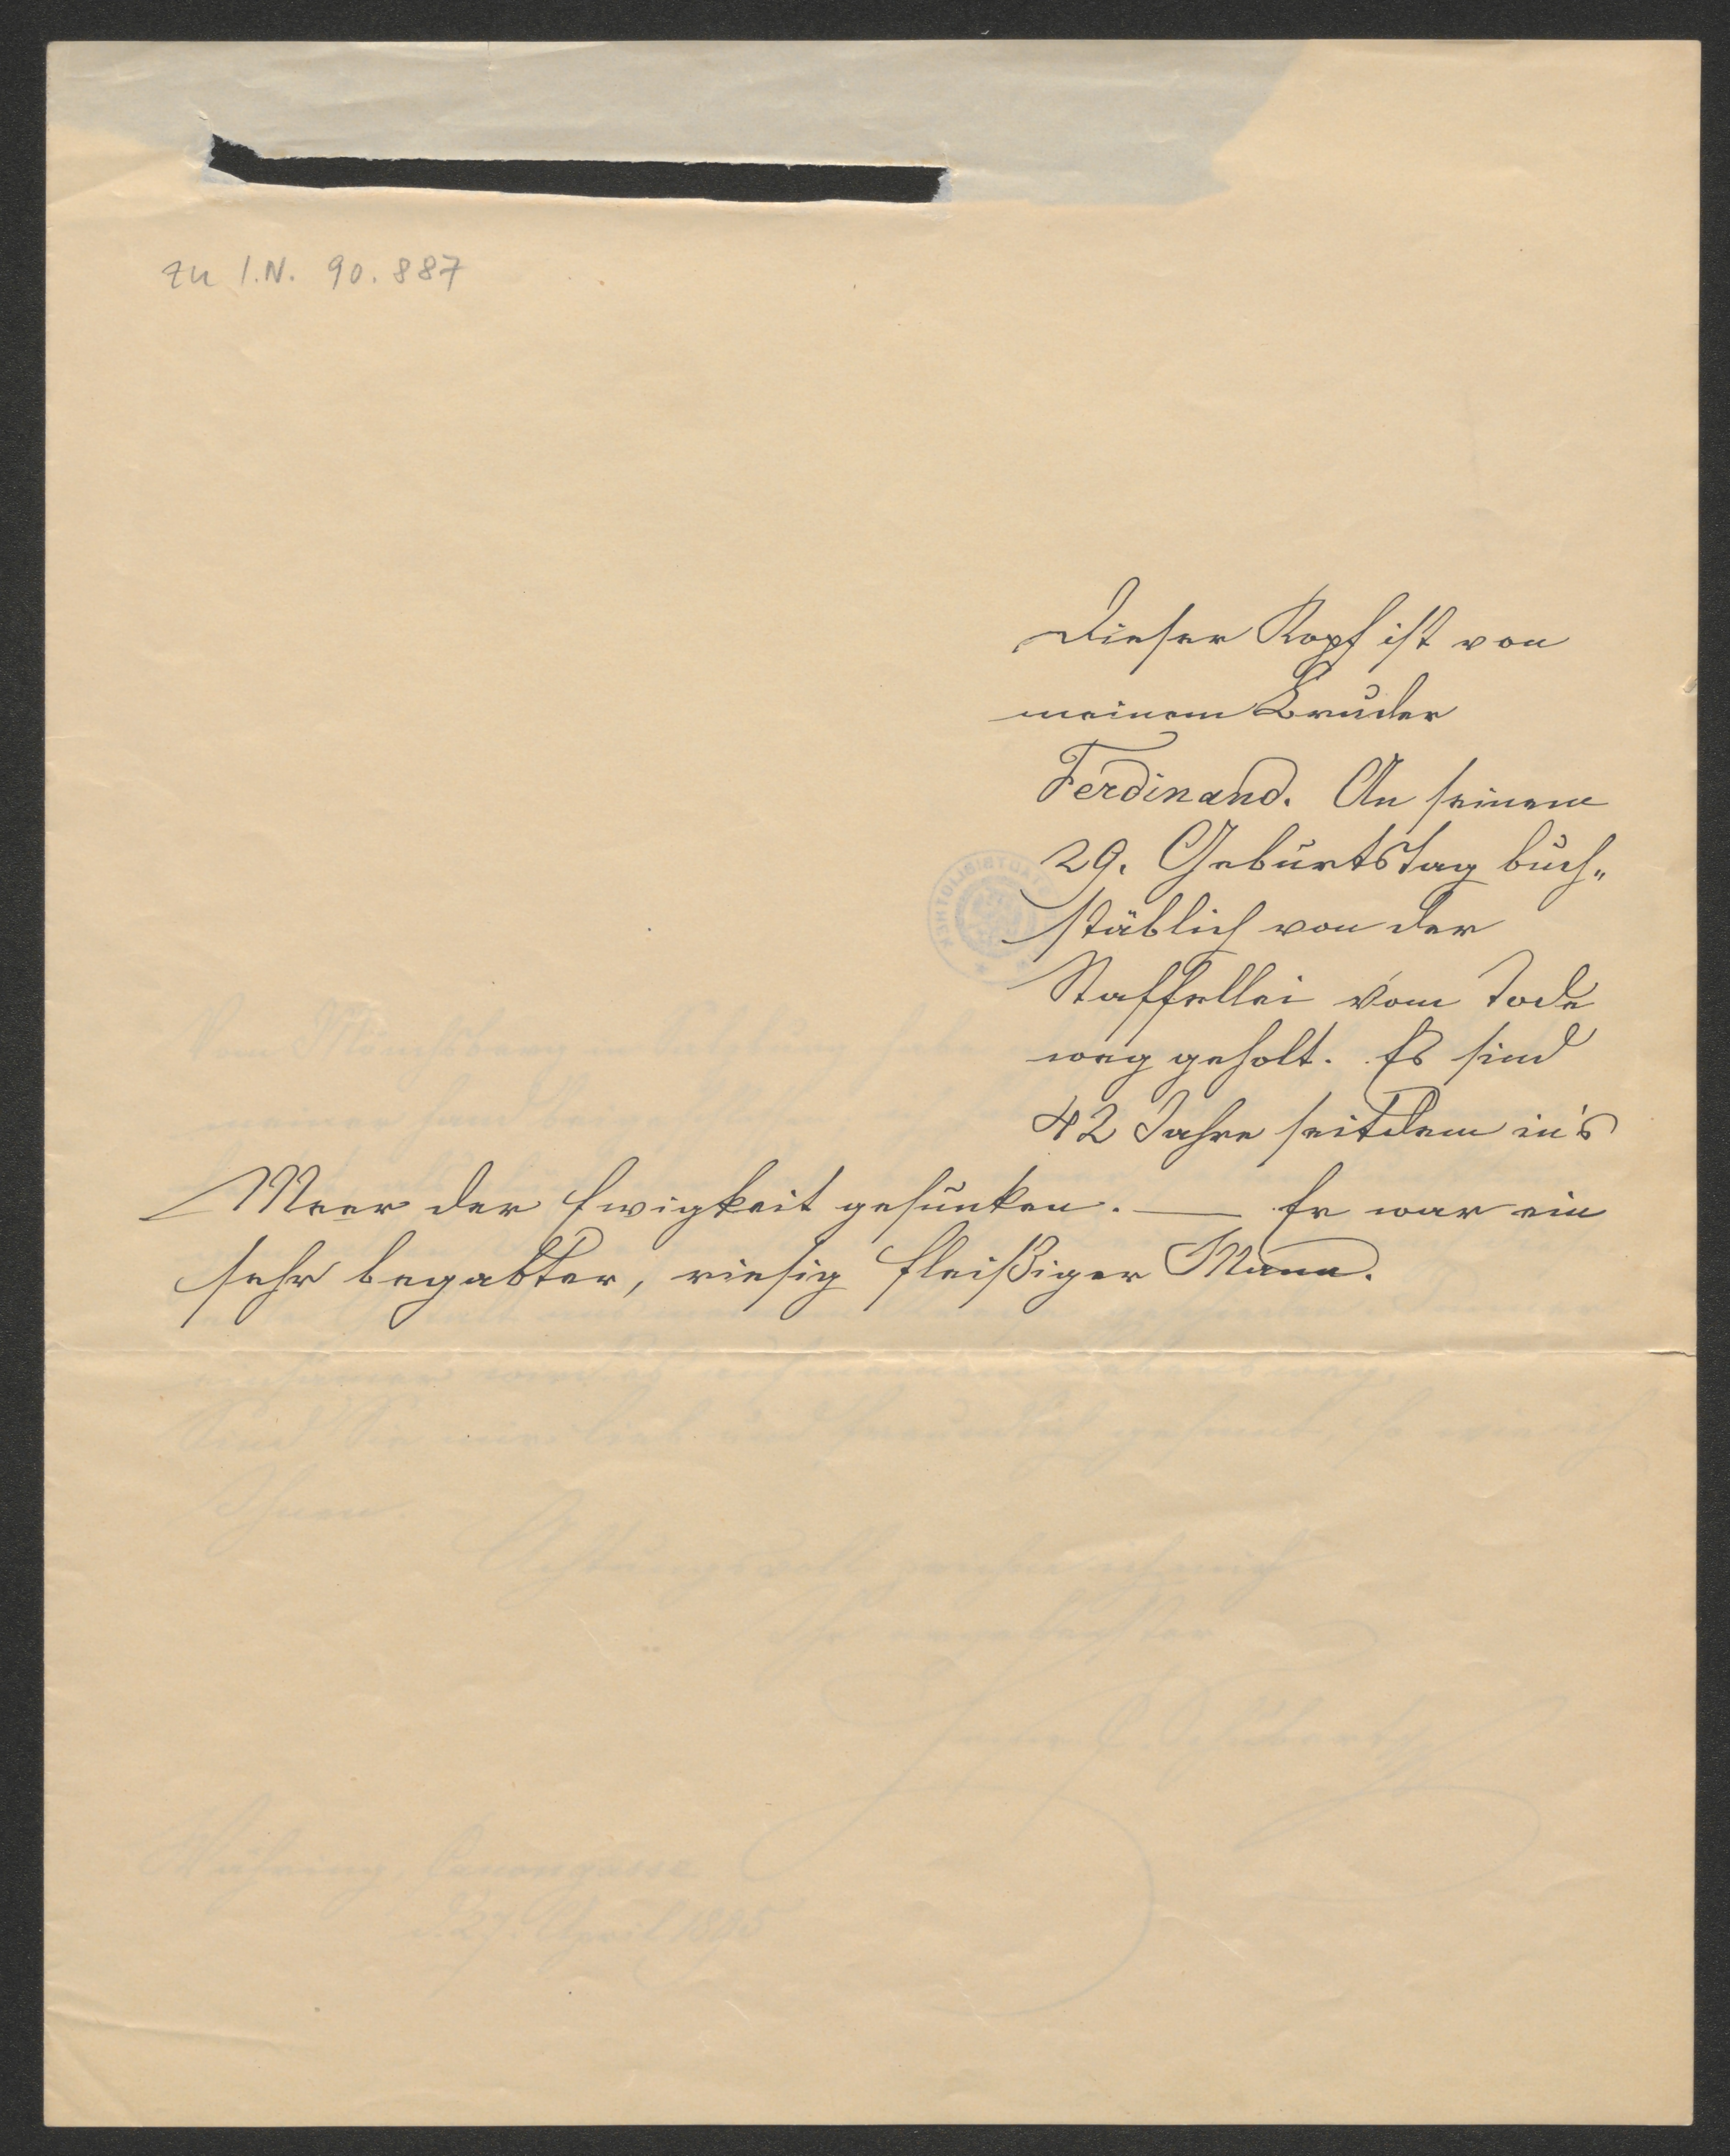 zu I.N. 90.887
Dieser Kopf ist von
meinem Bruder
Ferdinand. An seinem
29. Geburtstag buch„
stäblich von der
Staffellei vom Tode
weg geholt. Es sind
42 Jahre seitdem in's
Meer der Ewigkeit gesunken. — Er war ein
sehr begabter, riesig fleißiger Mann.